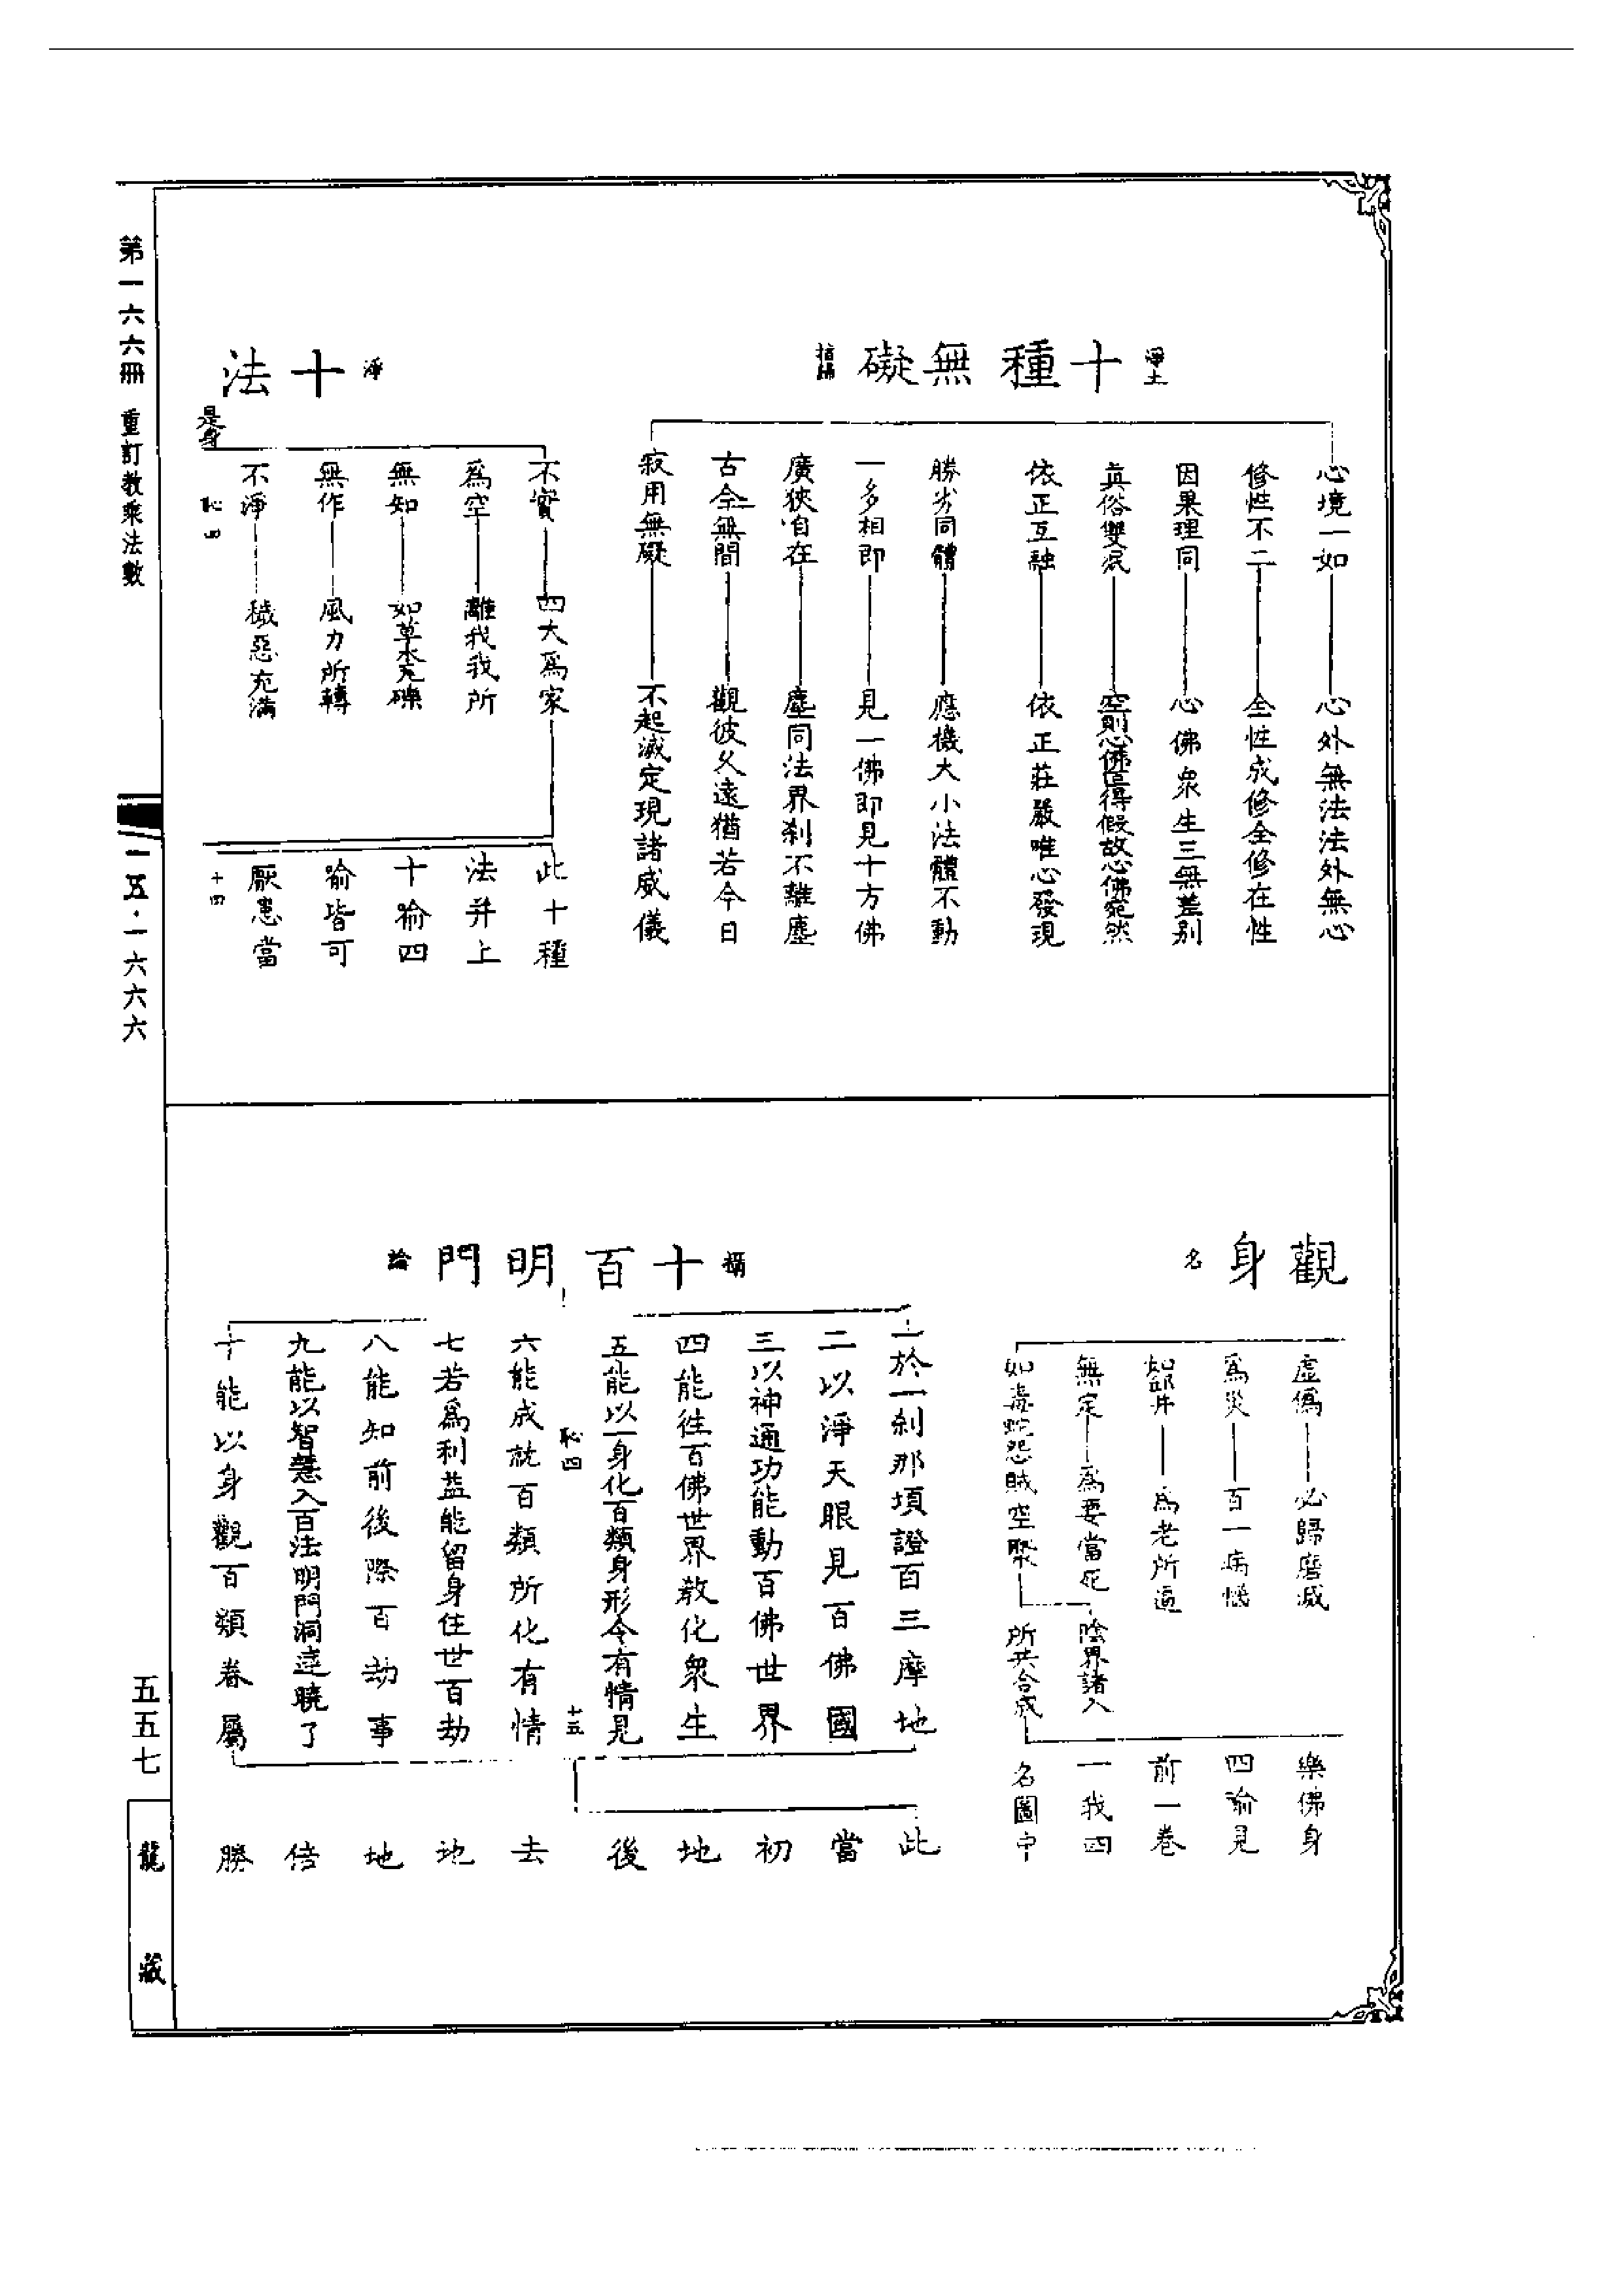 淨土
十種無礙
心境一如 心外無法法外無心
修性不二 全性成修全修在性
因果理同 心佛衆生三無差別
真俗雙泯 空則心佛叵得假故心佛宛然
依正互融 依正莊嚴唯心發現
勝劣同體 應機大小法體不動
一多相即 見一佛即見十方佛
廣狹自在 塵同法界刹不離塵
古今無間 觀彼久遠猶若今日
寂用無礙 不起滅定現諸威儀
淨
十法
是身
不實 四大爲家
爲空 離我我所
無知 如草木瓦礫
無作 風力所轉
不淨 穢惡充滿
此十種
法幷上
十喻四
喻皆可
厭患當
恥四
十四
觀身
名
虛僞 必歸磨滅
爲災 百一病惱
如邱井 爲老所逼
無定 爲要當死
如毒蛇怨賊空聚 陰界諸入
所共合成
樂佛身
四喻見
前一卷
一我四
名圖中
十百明門
論
一於一刹那頃證百三摩地
二以淨天眼見百佛國
三以神通功能動百佛世界
四能往百佛世界教化衆生
五能以一身化百類身形令有情見
恥四
十五
六能成就百類所化有情
七若爲利益能留身住世百劫
八能知前後際百劫事
九能以智慧入百法明門洞達曉了
十能以身觀百類眷屬
此當初地後去地地倍勝
第一六六冊 重訂教乘法數
一五·一六六六
五五七
龍藏